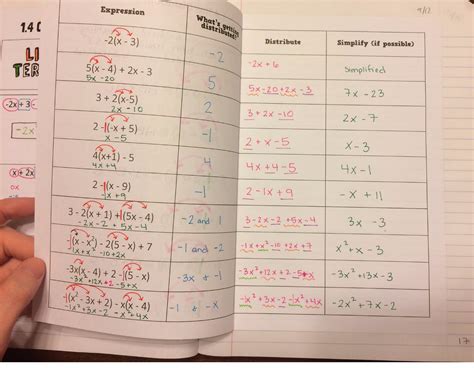 9/12
1.4
LI
TER
-2x + 3 -
-2x
Expression
What's getting distributed?
Distribute
Simplify (if possible)
-2(x - 3)
-2
-2x + 6
Simplified
5(x - 4) + 2x - 3
5x - 20
5
5x - 20 + 2x - 3
7x - 23
3 + 2(x-5)
2x - 10
2
3 + 2x - 10
2x - 7
2 - 1(-x + 5)
x - 5
-1
2 + x - 5
x - 3
4(x+1) - 5
4x + 4
4
4x + 4 - 5
4x - 1
2 - 1(x - 9)
-1x + 9
-1
2 - 1x + 9
-x + 11
3 - 2(x + 1) + 1(5x - 4)
-2x - 2 + 5x - 4
-2 and 1
3 - 2x - 2 + 5x - 4
3x - 3
-1(x - x²) - 2(5 - x) + 7
-1x + x² -10 + 2x
-1 and -2
-1x + x² - 10 + 2x + 7
x² + x - 3
-3x(x - 4) + 2 - (5 - x)
-3x² + 12x + 2 - 5 + x
-3x + -1
-3x² + 12x + 2 - 5 + x
-3x² + 13x - 3
-1(x² - 3x + 2) - x(x - 4)
-1x² + 3x - 2 - x² + 4x
-1 + -x
-x² + 3x - 2 - 1x² + 4x
-2x² + 7x - 2
17